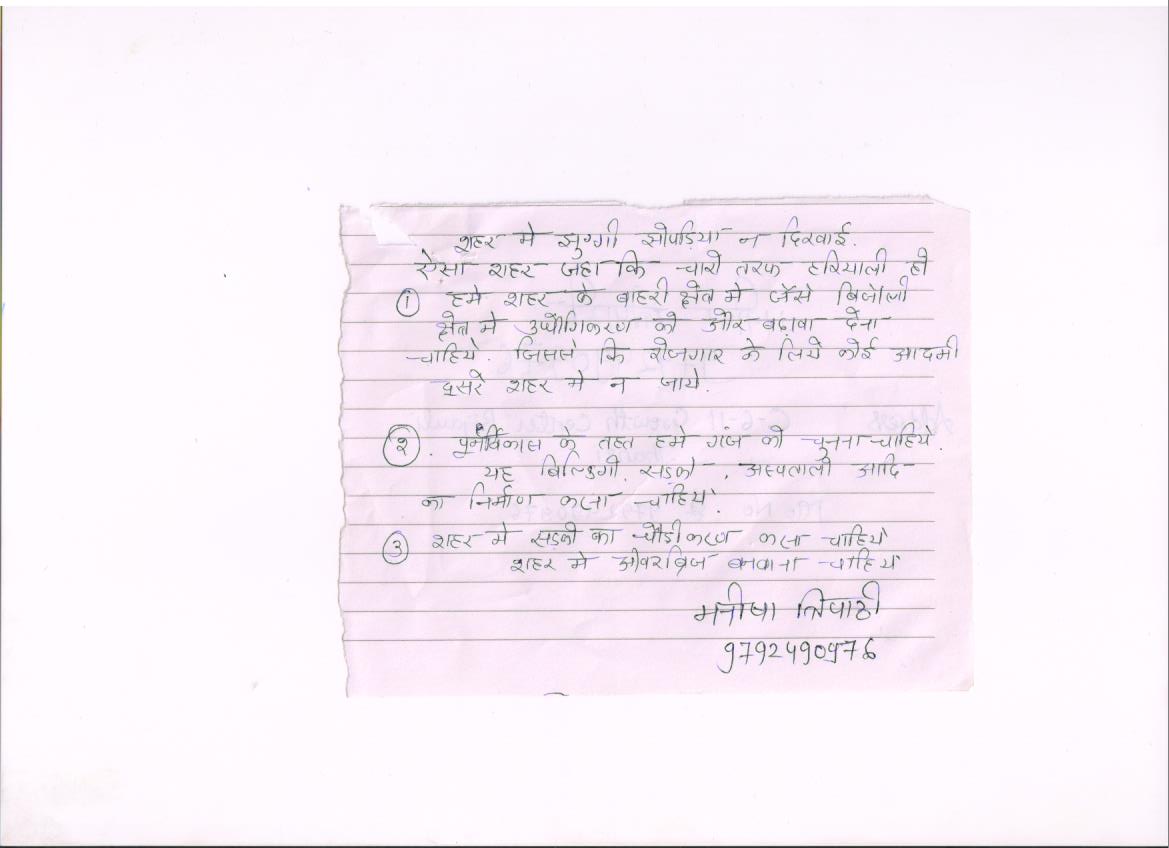 शहर मे झुग्गी झोपड़िया न दिखाई.
ऐसा शहर जहा कि चारो तरफ हरियाली हो
① हमे शहर के बाहरी क्षेत्र मे जैसे बिजौली
क्षेत्र मे उद्योगिकरण को और बढ़ावा देना
चाहिये. जिससे कि रोजगार के लिये कोई आदमी
दूसरे शहर मे न जाये.
② . पुर्नविकास के तहत हमे गंज को चुनना चाहिये.
यह बिल्डिगो, सड़को, अस्पतालो आदि
का निर्माण करना चाहिये.
③ शहर मे सड़को का चौडीकरण करना चाहिये
शहर मे ओवरब्रिज बनवाना चाहिये
मनीषा त्रिपाठी
9792490976